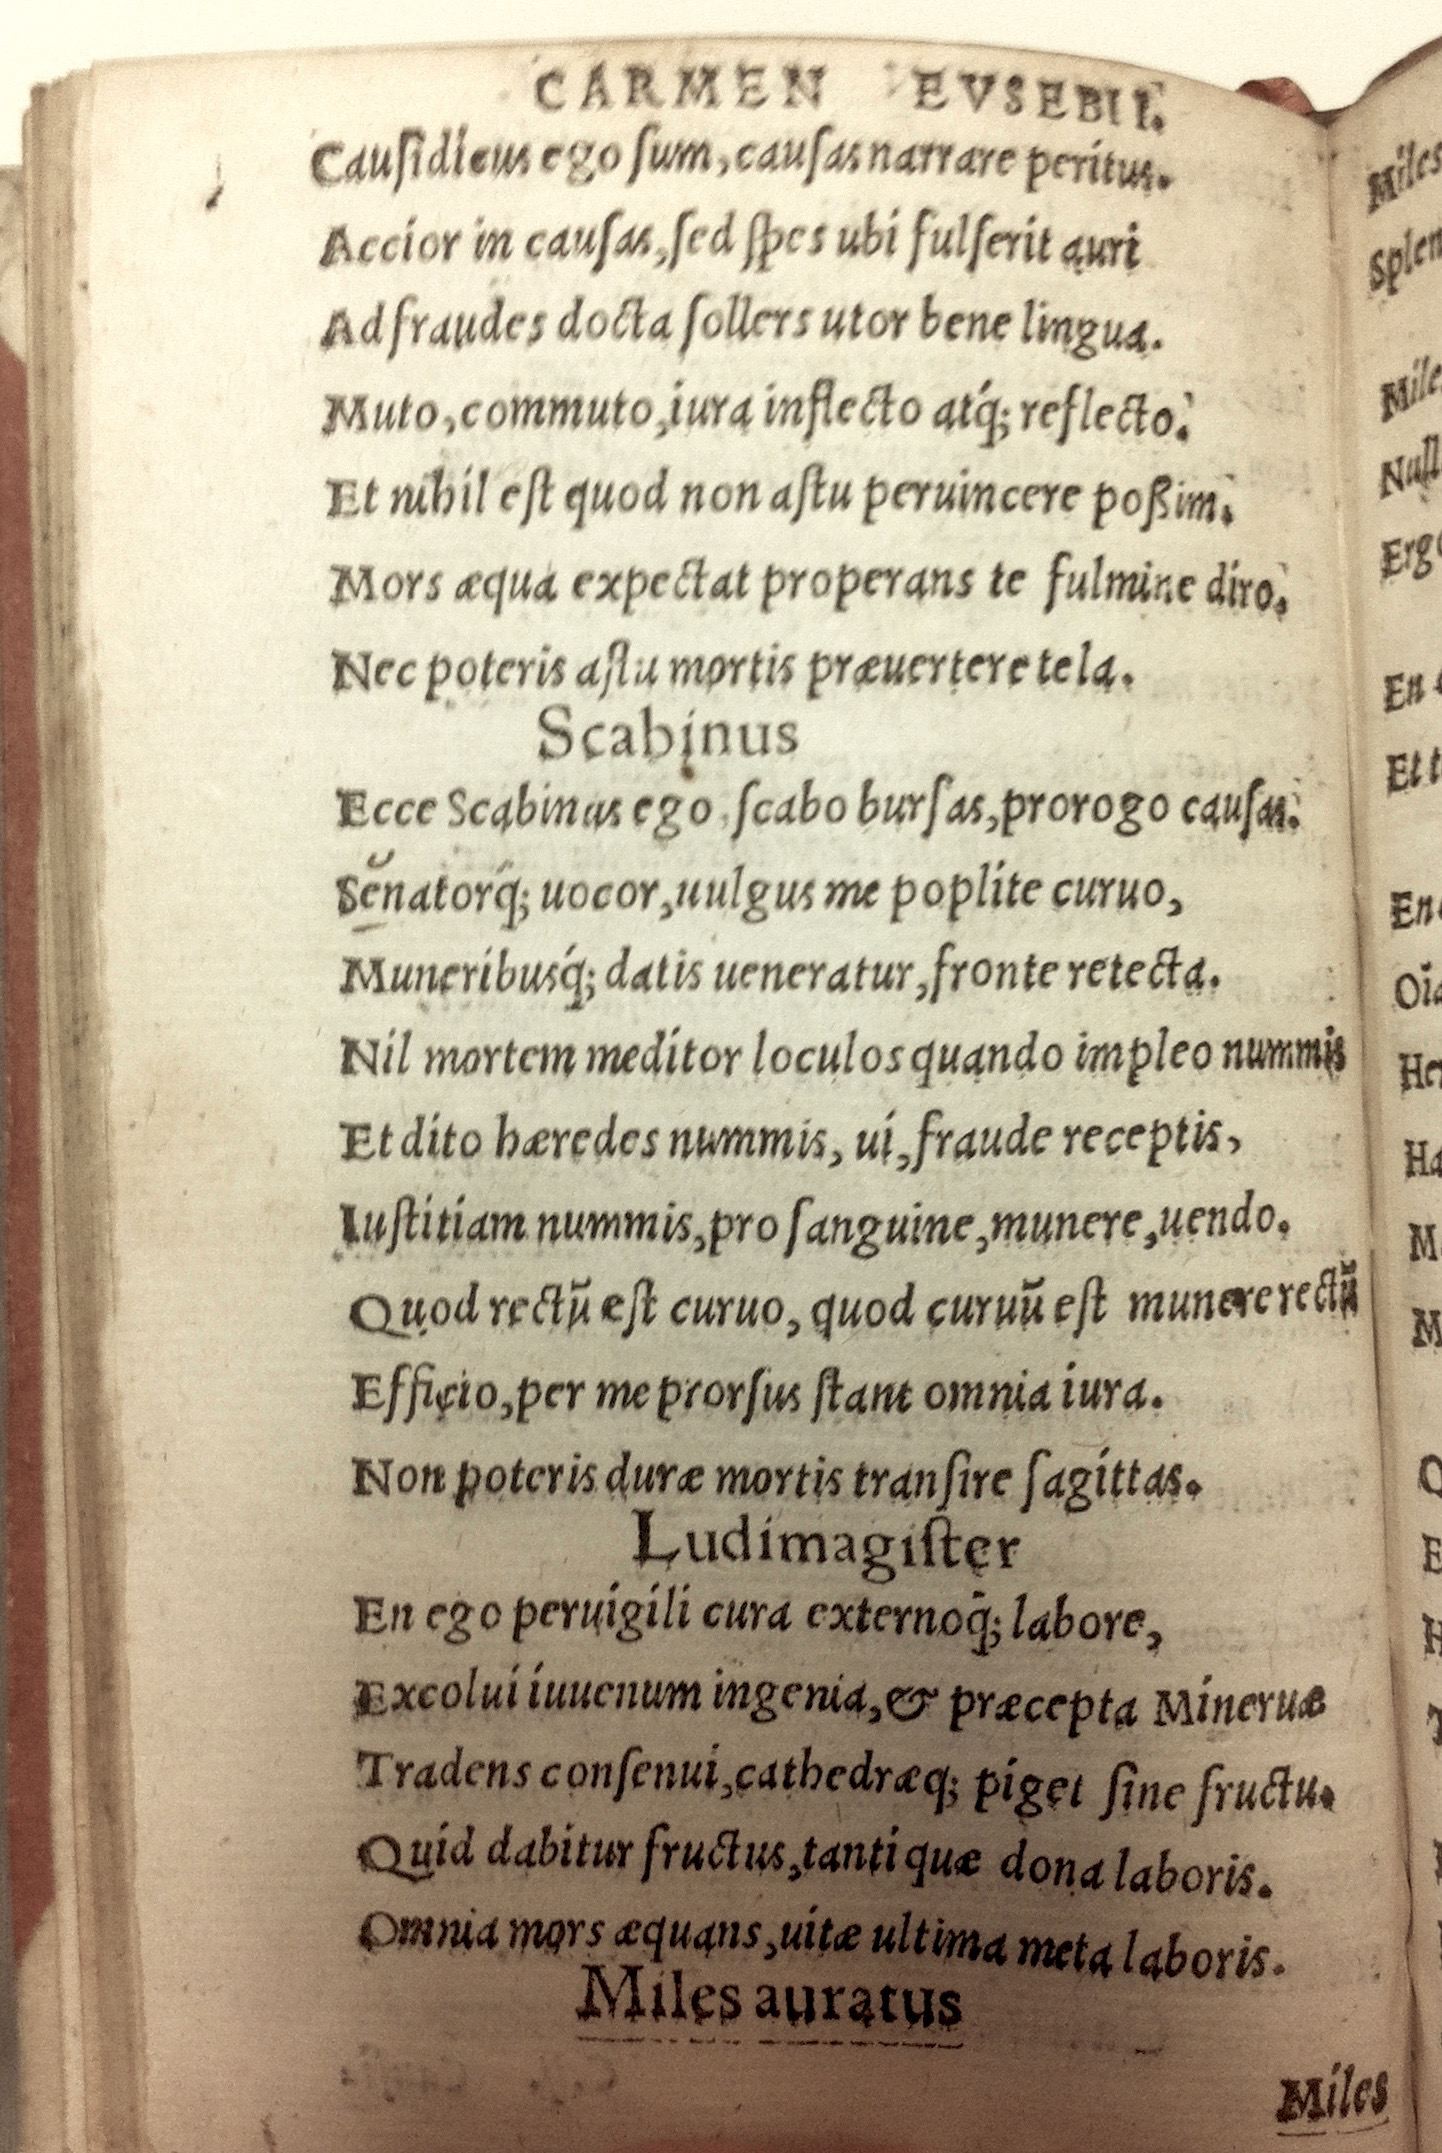 CARMEN EVSEBII.
Cauſidicus ego ſum, cauſas narrare peritus.
Accior in cauſas, ſed ſpes ubi fulſerit auri
Ad fraudes docta ſollers utor bene lingua.
Muto, commuto, iura inflecto atq́; reflecto.
Et nihil eſt quod non aſtu peruincere poßim.
Mors æqua expectat properans te fulmine diro.
Nec poteris aſtu mortis præuertere tela.
Scabinus
Ecce Scabinus ego ſcabo burſas, prorogo cauſas.
Senatorq́; uocor, uulgus me poplite curuo,
Muneribusq́; datis ueneratur, fronte retecta.
Nil mortem meditor loculos quando impleo nummis
Et dito hæredes nummis, ui, fraude receptis,
Iuſtitiam nummis, pro ſanguine, munere, uendo.
Quod rectũ eſt curuo, quod curuũ eſt munere rectũ
Efficio, per me prorſus ſtant omnia iura.
Non poteris duræ mortis tranſire ſagittas.
Ludimagiſter
En ego peruigili cura externoq́; labore,
Excolui iuuenum ingenia, & præcepta Mineruæ
Tradens conſenui, cathedræq; piget ſine fructu.
Quid dabitur fructus, tanti quæ dona laboris.
Omnia mors æquans, uitæ ultima meta laboris.
Miles auratus
Miles
Miles
En